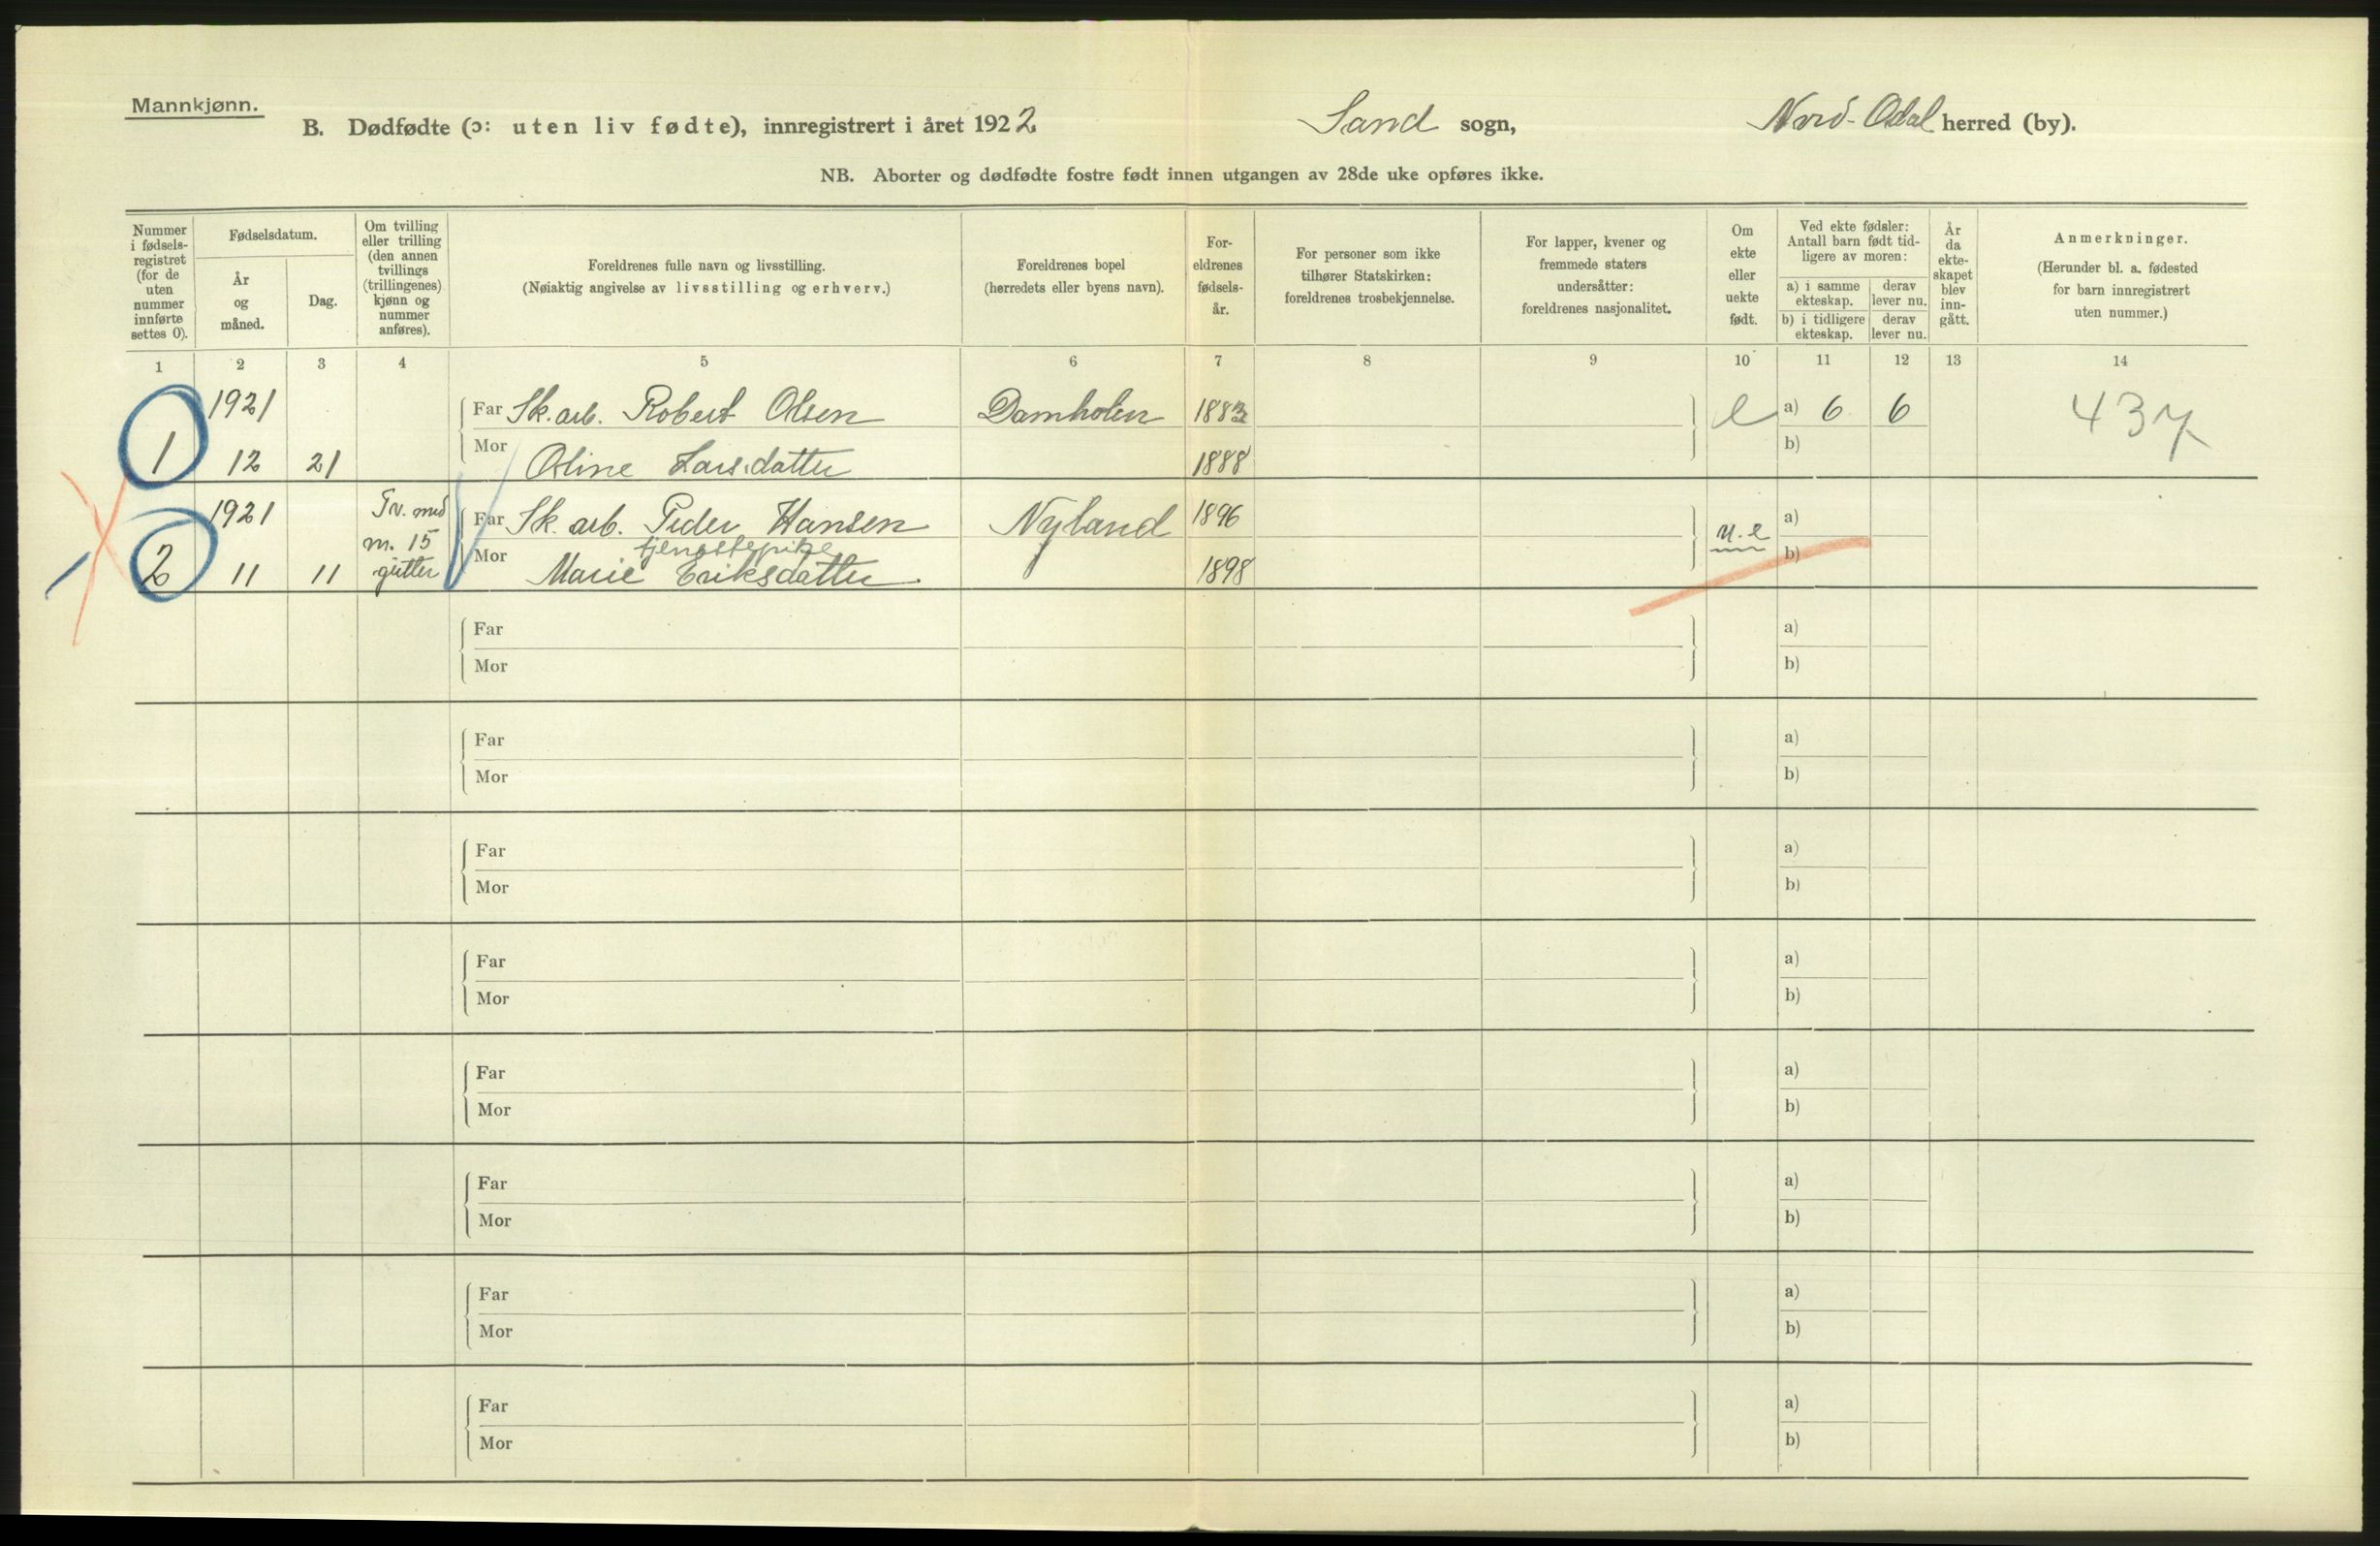 Mannkjønn.
B. Dødfødte (ɔ: uten liv fødte), innregistrert i året 1922
Sand sogn,
Nord-Odal herred (by).
NB. Aborter og dødfødte fostre født innen utgangen av 28de uke opføres ikke.
Nummer
i fødsels-
registret
(for de
uten
nummer
innførte
settes 0).
Fødselsdatum.
År
og
måned.
Dag.
Om tvilling
eller trilling
(den annen
tvillings
(trillingenes)
kjønn og
nummer
anføres).
Foreldrenes fulle navn og livsstilling.
(Nøiaktig angivelse av livsstilling og erhverv.)
Foreldrenes bopel
(herredets eller byens navn).
For-
eldrenes
fødsels-
år.
For personer som ikke
tilhører Statskirken:
foreldrenes trosbekjennelse.
For lapper, kvener og
fremmede staters
undersåtter:
foreldrenes nasjonalitet.
Om
ekte
eller
uekte
født.
Ved ekte fødsler:
Antall barn født tid-
ligere av moren:
a) i samme
ekteskap.
derav
lever nu.
b) i tidligere
ekteskap.
derav
lever nu.
År
da
ekte-
skapet
blev
inn-
gått.
Anmerkninger.
(Herunder bl. a. fødested
for barn innregistrert
uten nummer.)
1 2 3 4 5 6 7 8 9 10 11 12 13 14
1921 Far Sk. arb. Robert Olsen Damholen 1883 e a) 6 6 437
1 12 21 Mor Oline Larsdatter 1888 b)
1921 Tv. med Far Sk. arb. Peder Hansen Nyland 1896 u. e a)
m. 15 Mor tjenestepike b)
2 11 11 gutter Marie Eriksdatter. 1898
Far a)
Mor b)
Far a)
Mor b)
Far a)
Mor b)
Far a)
Mor b)
Far a)
Mor b)
Far a)
Mor b)
Far a)
Mor b)
Far a)
Mor b)